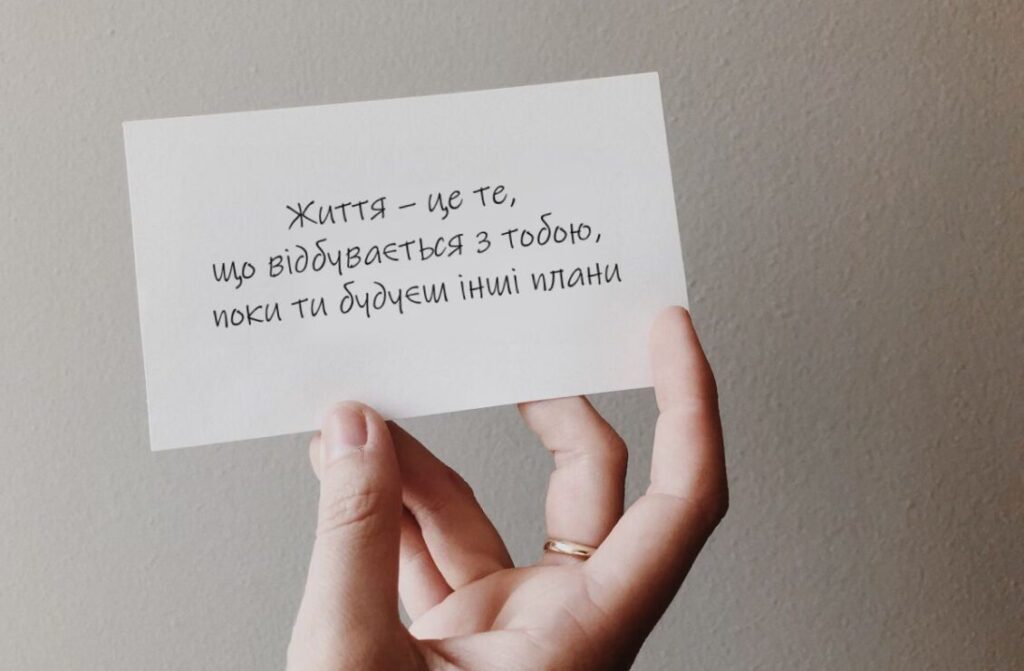 Життя – це те,
що відбувається з тобою,
поки ти будуєш інші плани